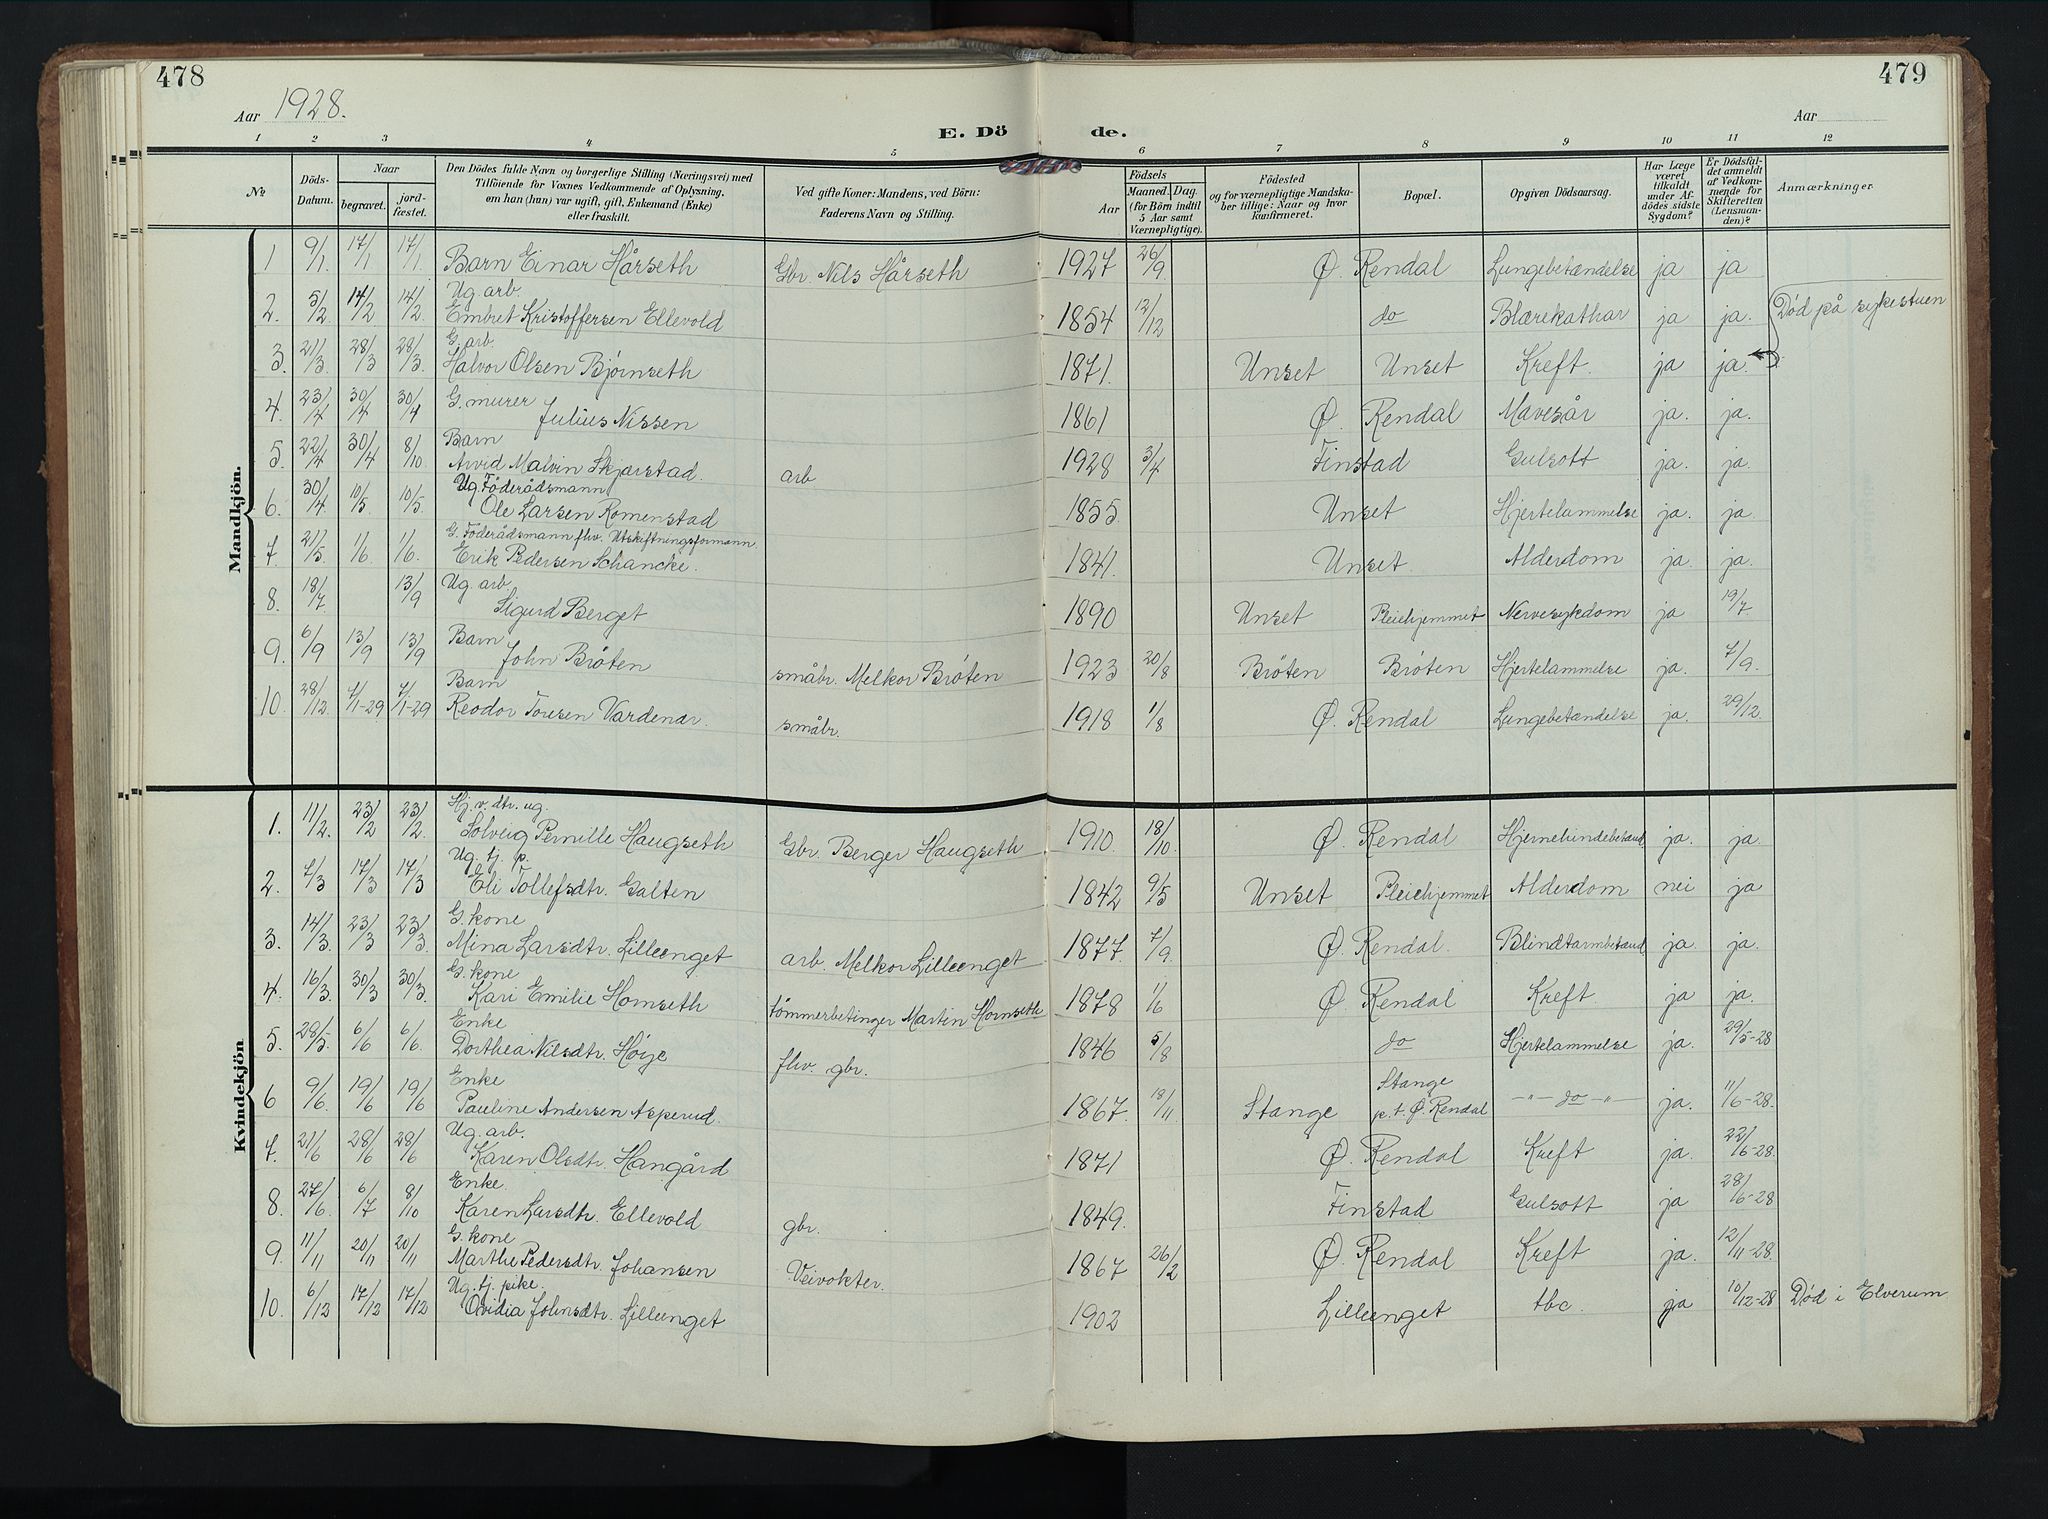 478
479
Aar 1928.
Aar
E. Dö de.
1 2 3 4 5 6 7 8 9 10 11 12
No
Döds-Datum.
Naar
begravet.
jordfæstet.
Den Dödes fulde Navn og borgerlige Stilling (Næringsvei) med Tilföiende for Voxnes Vedkommende af Oplysning, om han (hun) var ugift, gift, Enkemand (Enke) eller fraskilt.
Ved gifte Koner: Mandens, ved Börn: Faderens Navn og Stilling.
Födsels
Aar
Maaned. Dag.
(for Börn indtil 5 Aar samt Værnepligtige).
Födested og for værnepligtige Mandskaber tillige: Naar og hvor konfirmeret.
Bopæl.
Opgiven Dödsaarsag.
Har Læge været tilkaldt under Afdödes sidste Sygdom?
Er Dödsfaldet anmeldt af Vedkommende for Skifteretten (Lensmanden)?
Anmærkninger
Mandkjön.
1 9/1 17/1 17/1 Barn Einar Hårseth Gbr. Nils Hårseth 1927 26/9 Ø. Rendal Lungebetændelse ja ja
2. 5/2 14/2 14/2 Ug. arb. Embret Kristoffersen Ellevold 1854 12/12 do Blærekathar ja ja. Död på sykestuen
3. 21/3 28/3 28/3 G. arb. Halvor Olsen Bjørnseth 1871. Unset Unset Kreft. ja ja.
4. 23/4 30/4 30/4 G. murer Julius Nissen 1861 Ø. Rendal Mavesår ja. ja.
5. 22/4 30/4 8/10 Barn Arvid Malvin Skjærstad. arb 1928 3/4 Finstad Gulsott ja. ja.
6. 30/4 10/5 10/5 Ug. Föderådsmann Ole Larsen Romenstad 1855 Unset Hjertelammelse ja. ja.
7. 21/5 1/6 1/6 G. Föderådsmann fhv. Utskiftningsformann. Erik Pedersen Schancke. 1841. Unset. Alderdom ja. ja.
8. 18/7 13/9 Ug. arb. Sigurd Berget 1890 Unset Pleiehjemmet Nervesykdom ja 19/7
9. 6/9 13/9 13/9 Barn John Bröten småbr. Melkor Bröten 1923 20/8 Bröten Bröten Hjertelammelse ja. 7/9.
10. 28/12 4/1-29 7/1-29 Barn Reodor Toresen Vardenær. småbr. 1918 1/8 Ø. Rendal Lungebetændelse ja. 29/12.
Kvindekjön
1. 11/2. 23/2 23/2 Hj. v. dtr. ug. Solveig Pernille Haugseth Gbr. Berger Haugseth 1910 18/10 Ø. Rendal Hjernehindebetænd. ja. ja.
2. 7/3 17/3 17/3 Ug. tj. p. Eli Tollefsdtr. Galten 1842 9/5 Unset Pleiehjemmet Alderdom nei ja
3. 14/3 23/3 23/3 G. kone Mina Larsdtr. Lilleenget arb. Melkor Lilleenget 1877. 7/9 Ø. Rendal. Blindtarmbetænd ja ja.
4. 16/3 30/3 30/3. G. kone Kari Emilie Hornseth tömmerbetinger Martin Hornseth 1878 1/6 Ø. Rendal Kreft. ja ja.
5. 28/5. 6/6 6/6. Enke Dorthea Nilsdtr. Höye fhv. gbr. 1846 5/8 do Hjertelammelse ja. 29/5-28
6 9/6 19/6 19/6 Enke Pauline Andersen Asperud. 1867. 18/11 Stange Stange p. t. Ø. Rendal -"- do -"- ja. 11/6-28.
7. 21/6 28/6 28/6 Ug. arb. Karen Olsdtr. Hangård 1871 Ø. Rendal Kreft ja. 22/6-28.
8. 27/6 6/7 8/10 Enke. Karen Larsdtr. Ellevold gbr. 1849. Finstad Gulsott ja 28/6-28
9. 11/11 20/11 20/11 G. kone Marthe Pedersdtr. Johansen Veivokter. 1867 26/2 Ø. Rendal Kreft ja. 12/11-28.
10. 6/12 17/12 17/12 Ug. tj. pike. Ovidia Johnsdtr. Lilleenget 1902 Lilleenget tbc. ja 10/12-28 Död i Elverum